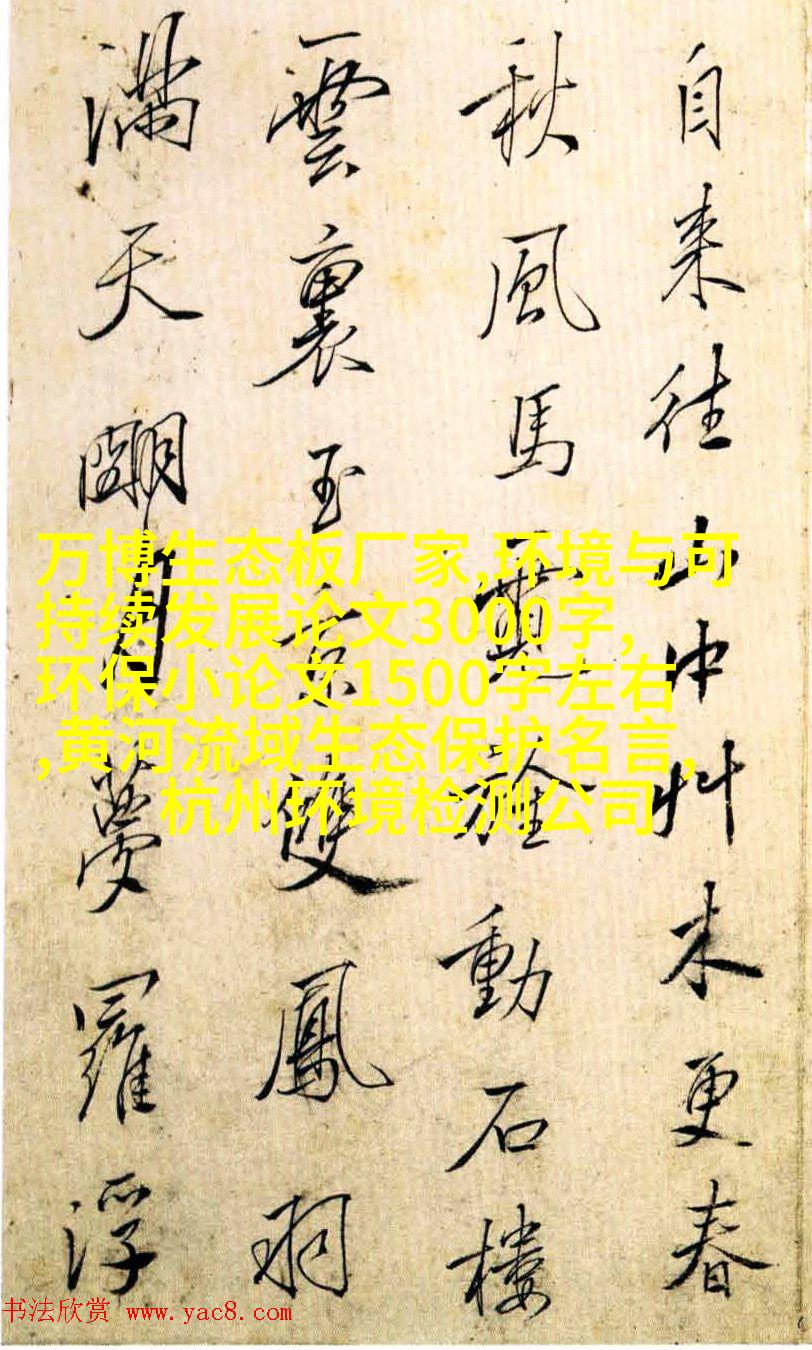 自来往山中艸木更春
秋風馬動石樓
雲裏玉京雙鳳羽
滿天朙月夢羅浮
万博生态板厂家,环境与可
持续发展论文3000字,
环保小论文1500字左右
,黄河流域生态保护名言,
杭州环境检测公司
书法欣赏 www.yac8.com